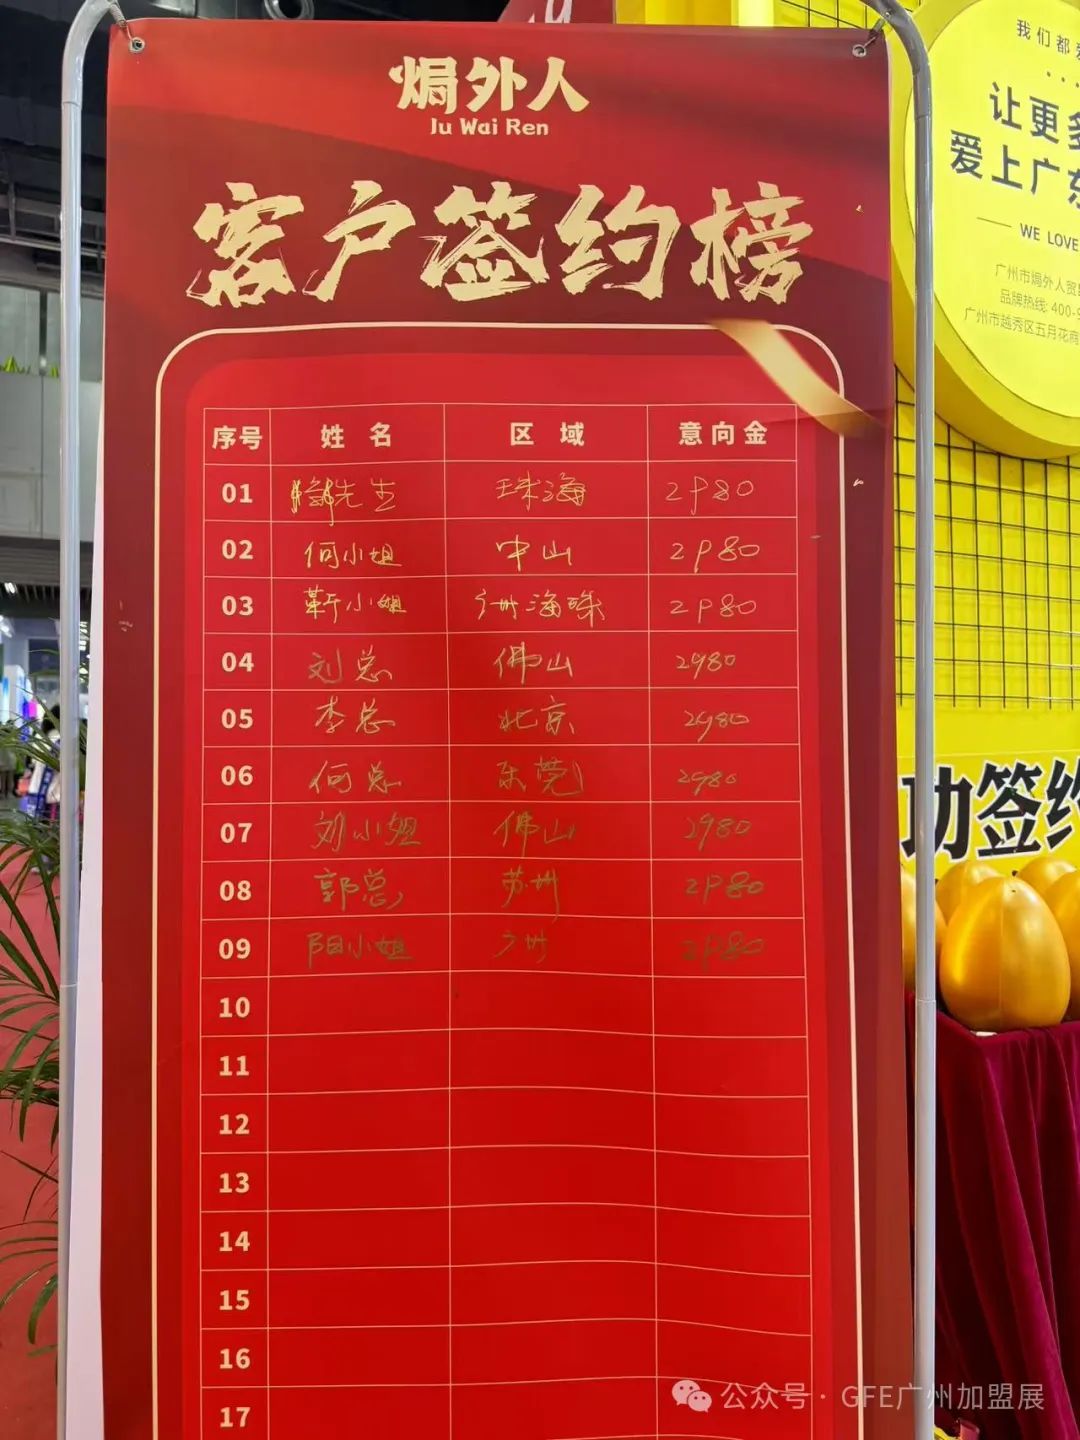 焗外人
Ju Wai Ren
客户签约榜
序号 姓名 区域 意向金
01 先生 珠海 2980
02 何小姐 中山 2980
03 靳小姐 广州海珠 2980
04 刘总 佛山 2980
05 李总 北京 2980
06 何总 东莞 2980
07 刘小姐 佛山 2980
08 郭总 苏州 2980
09 阳小姐 广州 2980
10
11
12
13
14
15
16
17
我们都爱
让更多
爱上广东
WE LOVE
广州市焗外人贸
品牌热线: 400-9
广州市越秀区五月花商
功签约
公众号 · GFE广州加盟展